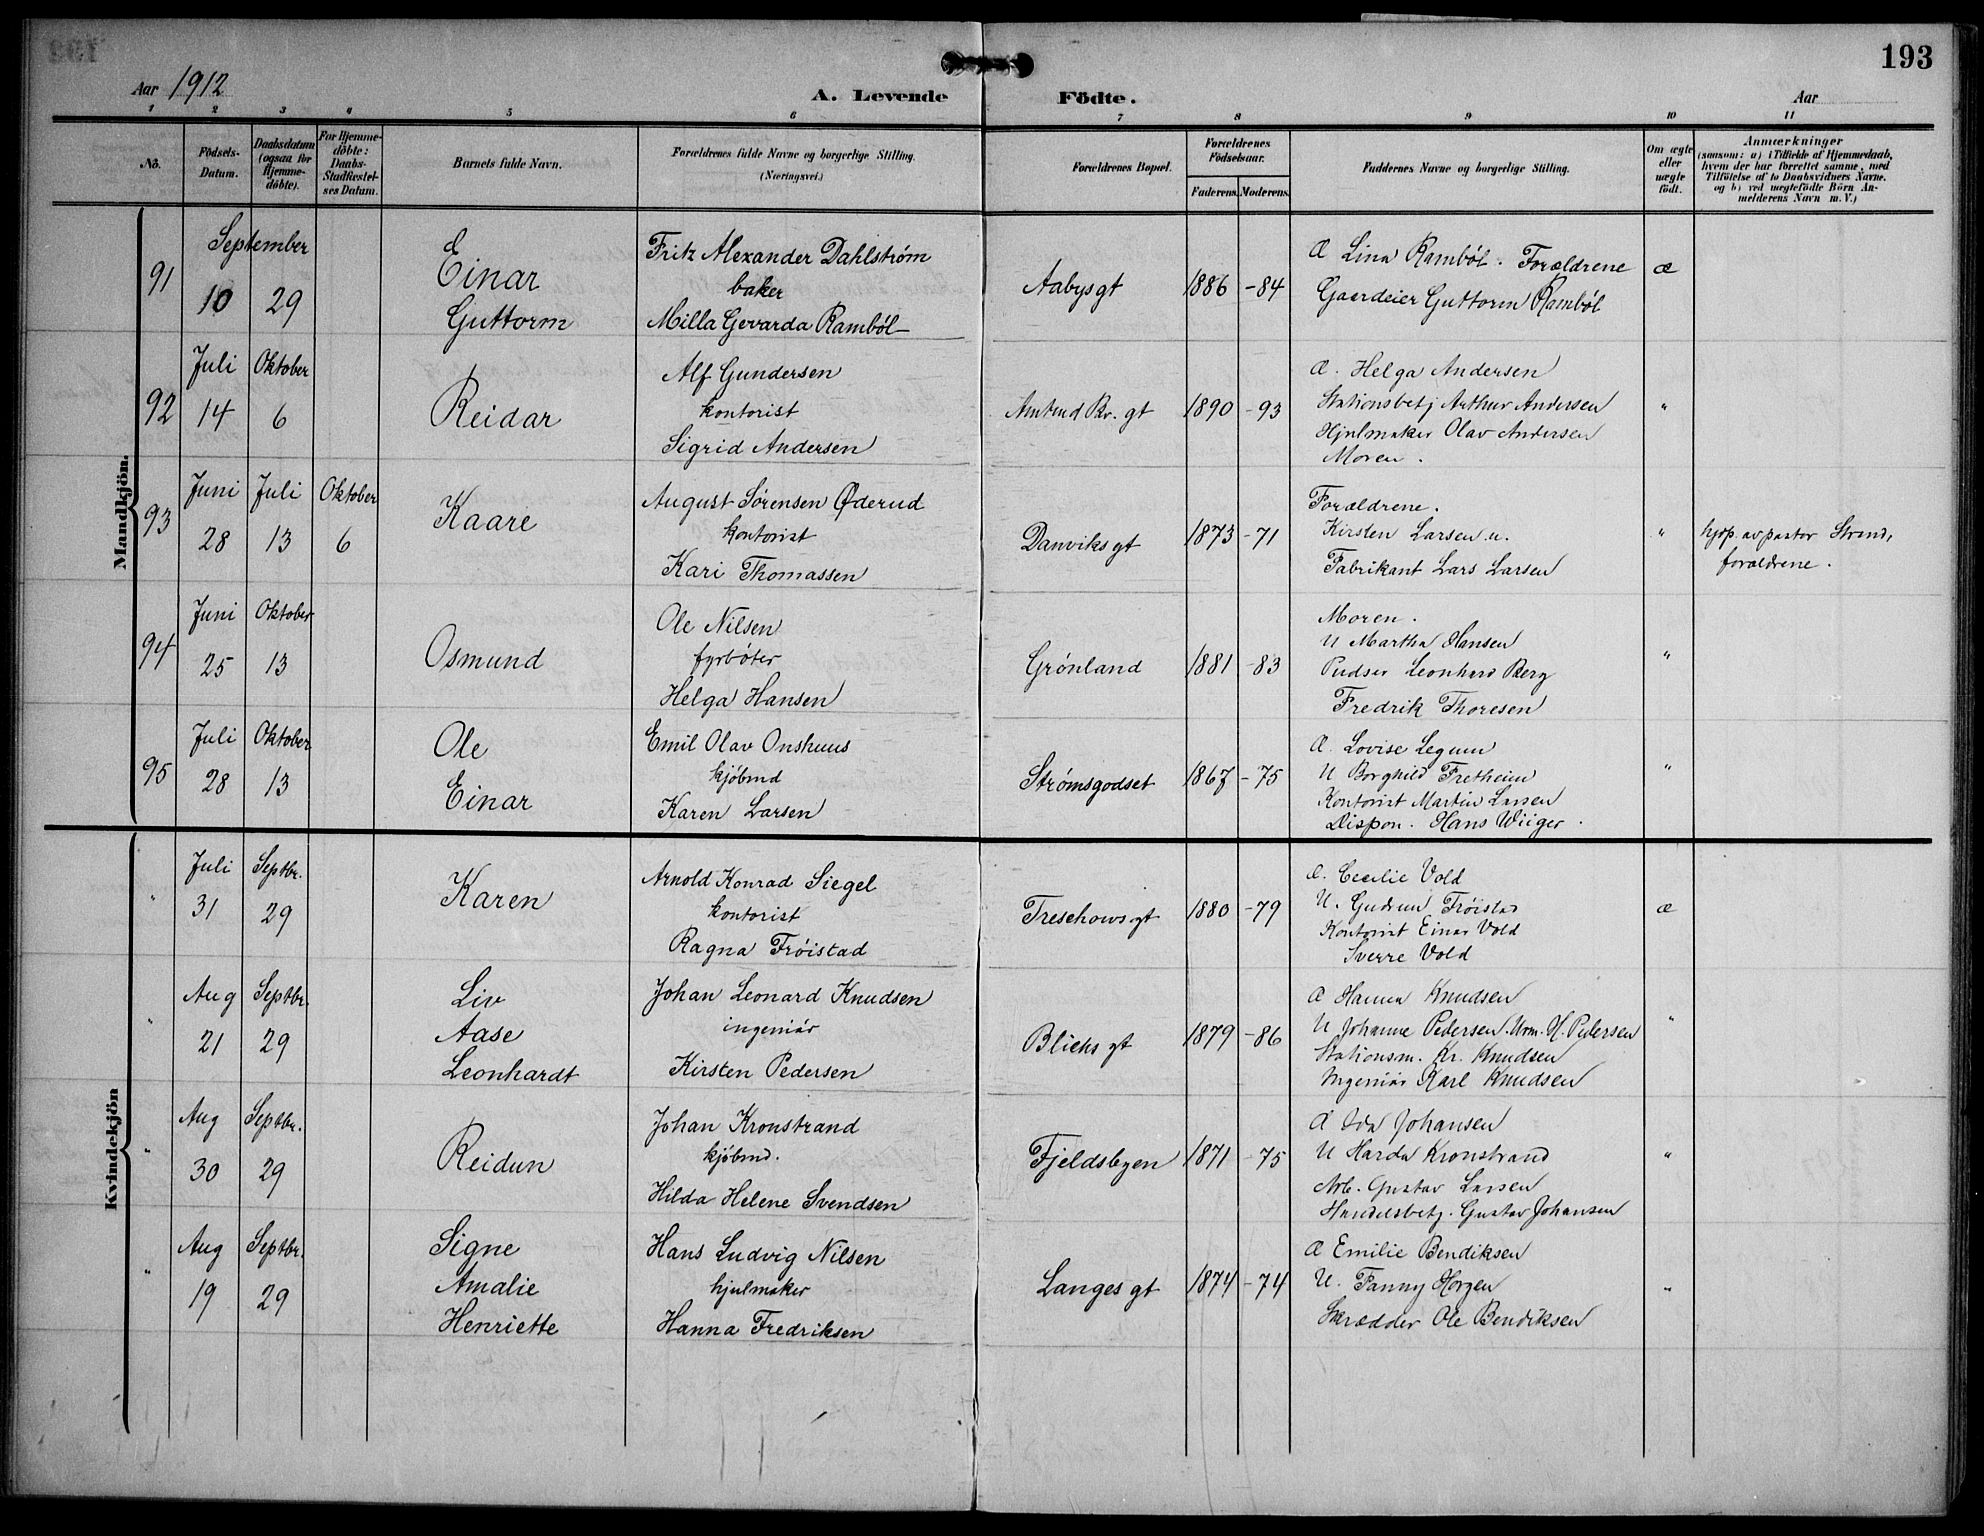 193
Aar 1912
A. Levende Födte.
Aar
1 2 3 4 5 6 7 8 9 10 11
No.
Födsels-Datum.
Daabsdatum (ogsaa for Hjemme-döbte).
For Hjemme-döbte: Daabs-Stadfæstel-ses Datum.
Barnets fulde Navn.
Forældrenes fulde Navne og borgerlige Stilling. (Næringsvei.)
Forældrenes Bopæl.
Forældrenes Födselsaar.
Faderens. Moderens.
Faddernes Navne og borgerlige Stilling.
Om ægte eller uægte födt.
Anmærkninger
(saasom: a) i Tilfælde af Hjemmedaab,
hvem der har forrettet samme, med
Tilföielse af to Daabsvidners Navne,
og b) ved uægtefödte Börn An-
melderens Navn m. V.)
Mandkjön.
91 September 10 29
Einar
Guttorm
Fritz Alexander Dahlstrøm
baker
Milla Gevarda Rambøl
Aabysgt 1886 -84
Æ Lina Rambøl. Forældrene
Gaardeier Guttorm Rambøl
æ
92 Juli 14 Oktober 6
Reidar
Alf Gundersen
kontorist
Sigrid Andersen
Amtmd Br. gt 1890 -93
Æ. Helga Andersen
Stationsbetj Arthur Andersen
Hjulmaker Olav Andersen
Moren.
"
93 Juni 28 Juli 13 Oktober 6
Kaare
August Sørensen Øderud
kontorist
Kari Thomassen
Danviks gt 1873 -71
Forældrene.
Kirsten Larsen u.
Fabrikant Lars Larsen
"
hjp. av pastor Strand,
forældrene.
94 Juni 25 Oktober 13
Osmund
Ole Nilsen
fyrbøter
Helga Hansen
Grønland 1881 -83
Moren.
U Martha Hansen
Pudser Leonhard Berg
Fredrik Thoresen
"
95 Juli 28 Oktober 13
Ole
Einar
Emil Olav Onshuus
kjøbmd
Karen Larsen
Strømsgodset 1867 -75
Æ. Lovise Legum
U Borghild Fretheim
Kontorist Martin Larsen
Dispon. Hans Wiiger.
"
Kvindekjön
" Juli 31 Septbr. 29
Karen
Arnold Konrad Siegel
kontorist
Ragna Frøistad
Treschowsgt 1880 -79
Æ. Cecilie Vold
U. Gudrun Frøistad
Kontorist Einar Vold
Sverre Vold
æ
" Aug 21 Septbr. 29
Liv
Aase
Leonhardt
Johan Leonard Knudsen
ingeniør
Kirsten Pedersen
Blichs gt 1879 -86
Æ Hanna Knudsen
U Johanne Pedersen. Urm. H. Pedersen
Stationsm. Kr. Knudsen
Ingeniør Karl Knudsen
"
" Aug 30 Septbr. 29
Reidun
Johan Kronstrand
kjøbmd.
Hilda Helene Svendsen
Fjeldsbyen 1871 -75
Æ Ida Johansen
U Harda Kronstrand
Arb. Gustav Larsen
Handelsbetj. Gustav Johansen
"
" Aug 19 Septbr. 29
Signe
Amalie
Henriette
Hans Ludvig Nilsen
hjulmaker
Hanna Fredriksen
Langes gt 1874 -74
Æ Emilie Bendiksen
U. Fanny Horgen
Skrædder Ole Bendiksen
"